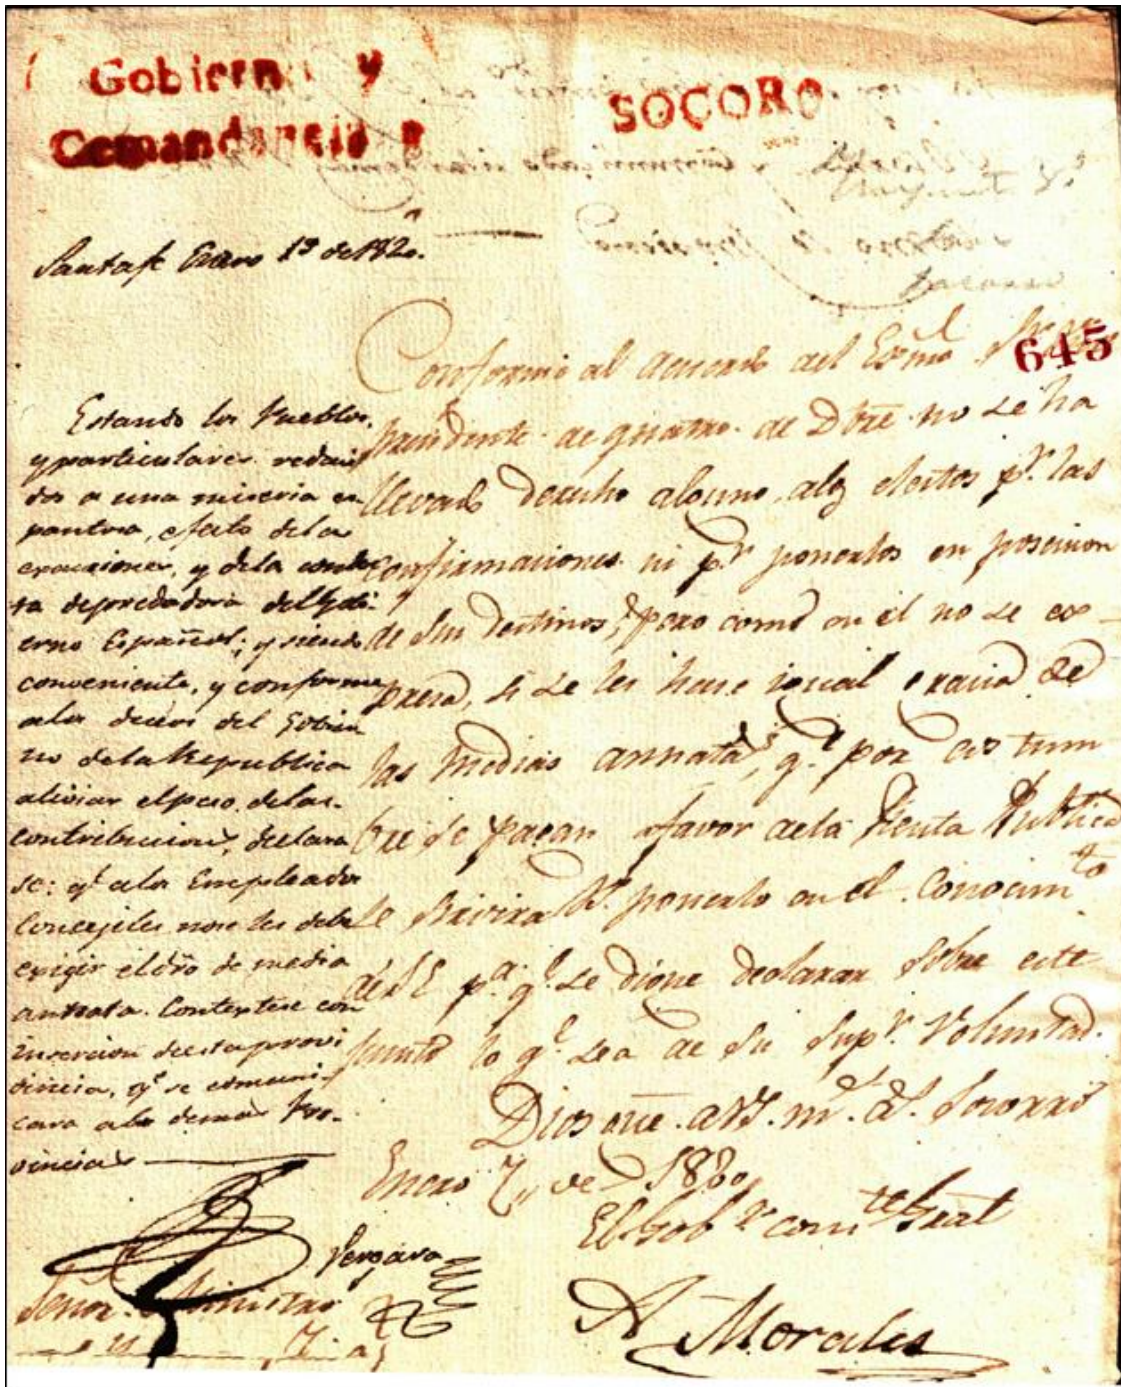 Gobierno y
Comandancia
SOCORO
645
Santafe Enero 13 de 1820.
Estando los Pueblos,
y particulares reduci
dos a una miseria es
pantosa, efecto de las
exacciones, y de la conduc
ta depredadora del Gobi
erno Español; y siendo
conveniente, y conforme
a los deseos del Gobier
no de la Republica
aliviar el peso de las
contribucion, declara
se: qe a los Empleados
Concejiles no se les debe
exigir el dro de media
annata. Contextese con
insercion de esta provi
dencia, qe se comuni
cara a las demas Pro-
vincias
Vergara
Conforme al acuerdo del Exmo Sr
Presidente de quatro de Dbre no se ha
llevado derecho alguno a los electos pr. las
confirmaciones ni pr ponerlos en posecion
de sus destinos; pero como en el no se ex
presa, si se les hase igual gracia de
las medias annatas, qe por costum
bre se pagan a favor de la Renta Publica
se servira V. ponerlo en el Conocimto
de S E pa. qe se digne declarar sobre este
punto lo qe sea de su Supr. Voluntad.
Dios gue. a V.S. ms. as. Socorro
Enero 7,, de 1820
El Gobr comte Gral
A Morales
Señor Ministro